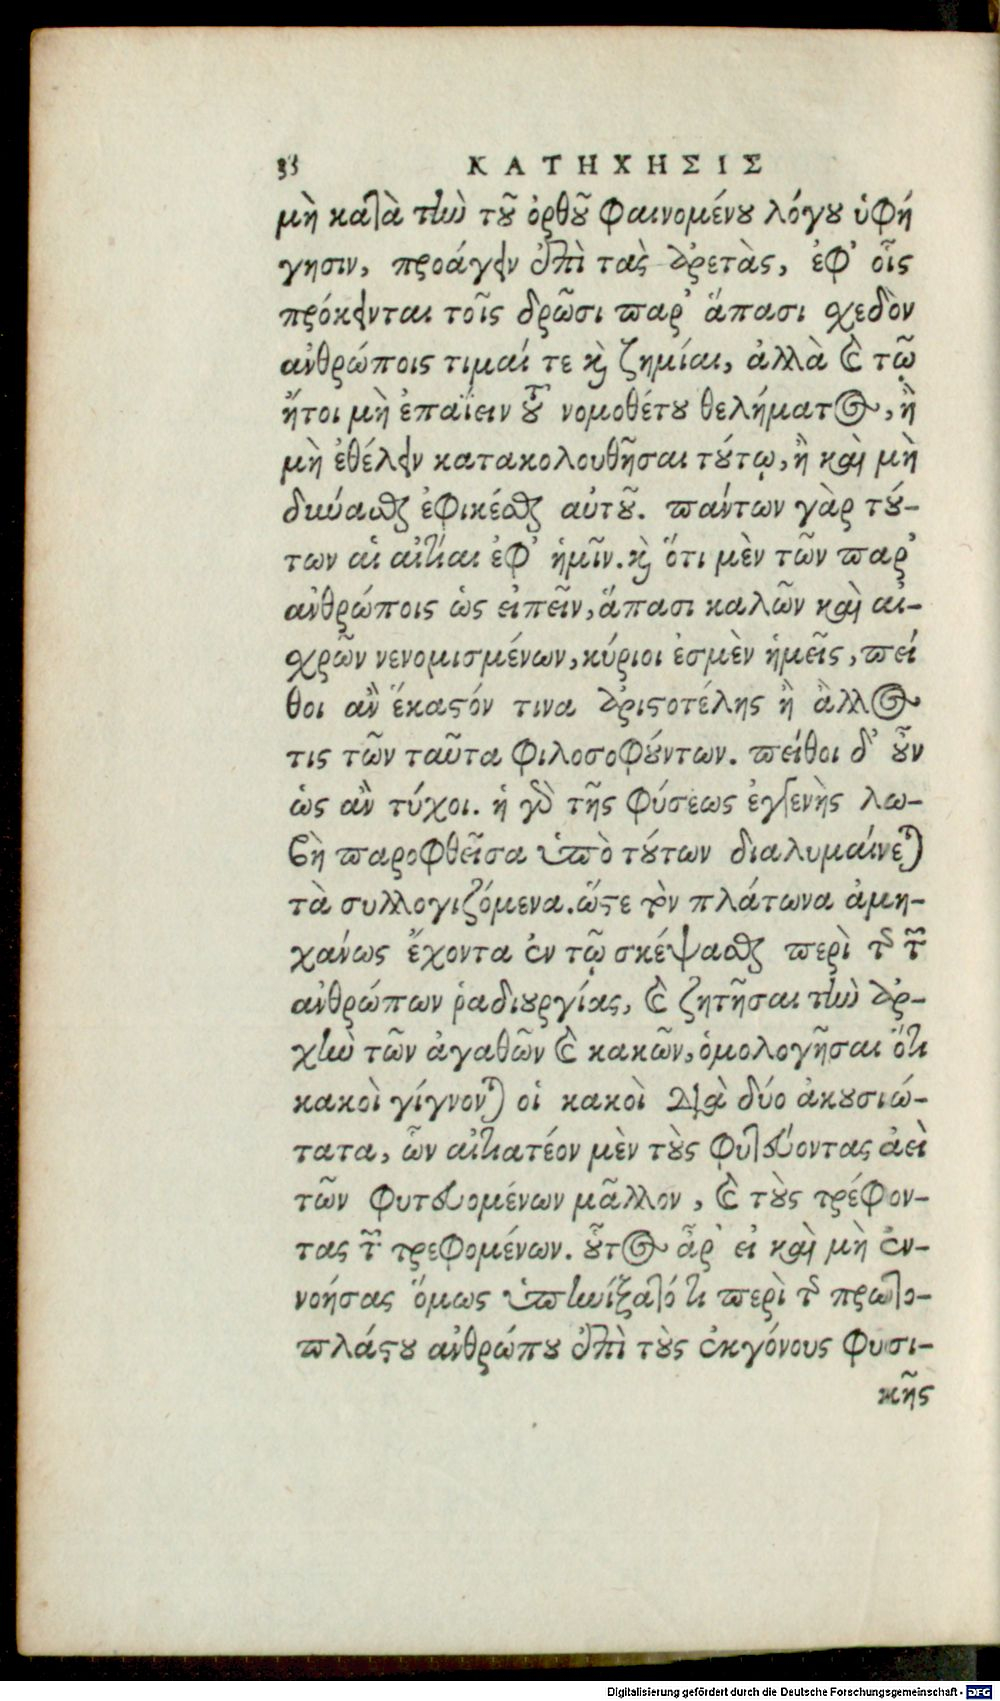 ΚΑΤΗΧΗΣΙΣ
μὴ κατὰ τὴν τοῦ ὀρθοῦ φαινομένου λόγου ὑφή
γησιν, προάγειν ἐπὶ τὰς ἀρετὰς, ἐφ' οἷς
πρόκεινται τοῖς δρῶσι παρ' ἅπασι σχεδὸν
ἀνθρώποις τιμαί τε καὶ ζημίαι, ἀλλὰ καὶ τῷ
ἤτοι μὴ ἐπαΐειν τοῦ νομοθέτου θελήματος, ἢ
μὴ ἐθέλειν κατακολουθῆσαι τούτῳ, ἢ καὶ μὴ
δύνασθαι ἐφικέσθαι αὐτοῦ. πάντων γὰρ τού-
των αἱ αἰτίαι ἐφ' ἡμῖν. καὶ ὅτι μὲν τῶν παρ'
ἀνθρώποις ὡς εἰπεῖν, ἅπασι καλῶν καὶ αἰ-
σχρῶν νενομισμένων, κύριοι ἐσμὲν ἡμεῖς, πεί
θοι ἂν ἕκαστόν τινα ἀριστοτέλης ἢ ἄλλος
τις τῶν ταῦτα φιλοσοφούντων. πείθοι δ' οὖν
ὡς ἂν τύχοι. ἡ γὰρ τῆς φύσεως ἐγγενὴς λω-
βὴ παροφθεῖσα ὑπὸ τούτων διαλυμαίνεται
τὰ συλλογιζόμενα. ὥστε τὸν πλάτωνα ἀμη-
χάνως ἔχοντα ἐν τῷ σκέψασθαι περὶ τῆς τῶν
ἀνθρώπων ῥαδιουργίας, καὶ ζητῆσαι τὴν ἀρ-
χὴν τῶν ἀγαθῶν καὶ κακῶν, ὁμολογῆσαι ὅτι
κακοὶ γίγνονται οἱ κακοὶ διὰ δύο ἀκουσιώ-
τατα, ὧν αἰτιατέον μὲν τοὺς φυτεύοντας ἀεὶ
τῶν φυτευομένων μᾶλλον, καὶ τοὺς τρέφον-
τας τῶν τρεφομένων. οὗτος ἆρ' εἰ καὶ μὴ ἐν-
νοήσας ὅμως ὑπῃνίξατό τι περὶ τῆς πρωτο-
πλάστου ἀνθρώπου ἐπὶ τοὺς ἐκγόνους φυσι-
κῆς
Digitalisierung gefördert durch die Deutsche Forschungsgemeinschaft - DFG